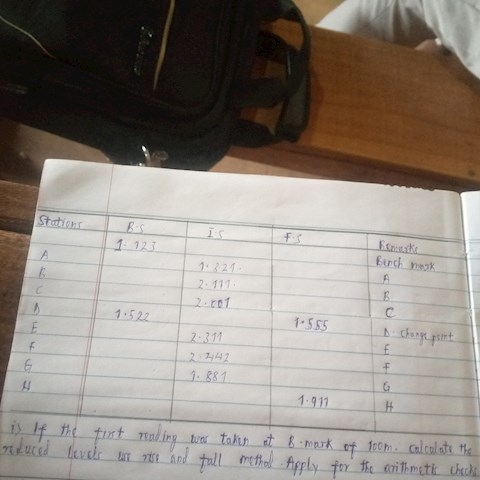 Stations B.S I.S F.S Remarks
1.123 Bench mark
A 1.321 A
B 2.111 B
C 2.001 C
D 1.522 1.555 D. change point
E 2.311 E
F 2.442 F
G 1.881 G
H 1.911 H
is If the first reading was taken at B.mark of 100m. calculate the
reduced levels use rise and fall method Apply for the arithmetic check